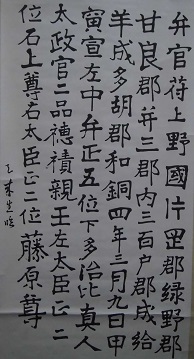 弁官苻上野國片罡郡緑野郡
甘良郡并三郡内三百戸郡成給
羊成多胡郡和銅四年三月九日甲
寅宣左中弁正五位下多治比真人
太政官二品穂積親王左太臣正二
位石上尊右太臣正二位藤原尊